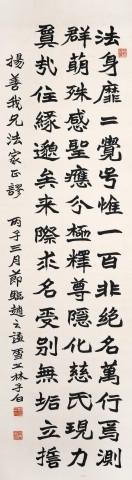 法身靡二覺号惟一百非絕名萬行焉測
群萌殊感聖應分極釋尊隱化慈氏現力
翼㢤住緣邈矣来際求名受別無垢立
揚善我兄法家正謬 丙子三月節臨趙之謙 雪工林子白